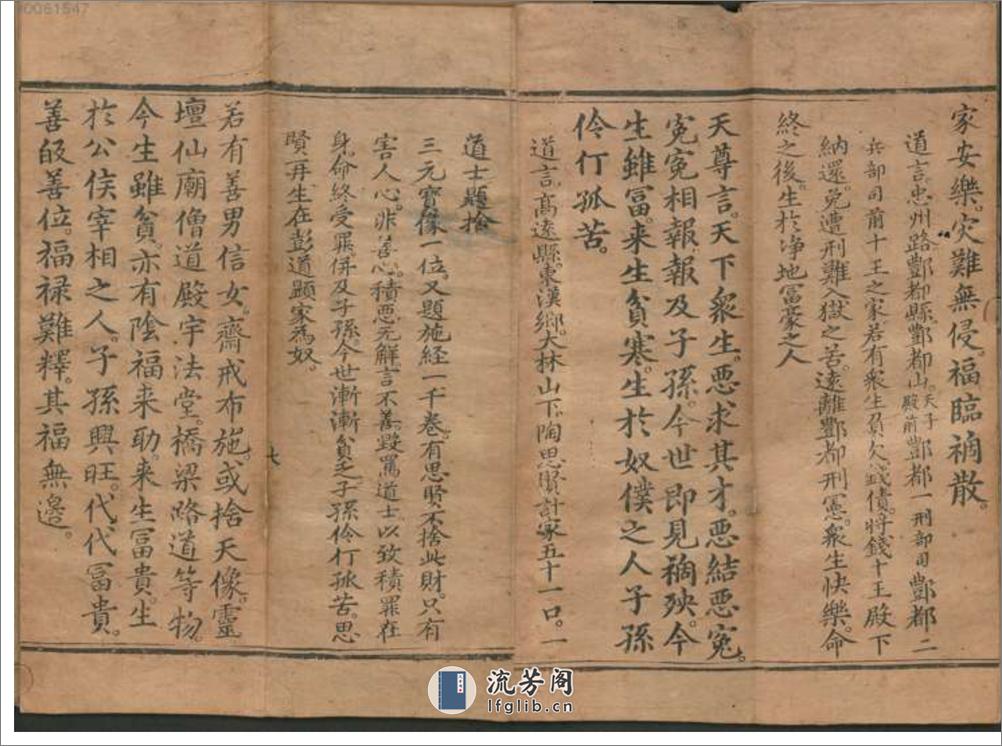 家安樂。灾難無侵。福臨禍散。
道言。忠州路酆都縣酆都山。天子殿前酆都一刑部司酆都二
兵部司前十王之家。若有衆生負欠錢債。將錢十王殿下
納還。免遭刑難入獄之苦。遠離酆都刑憲。衆生快樂。命
終之後。生於净地冨豪之人
天尊言。天下衆生。惡求其才。惡結惡冤。
冤冤相報。報及子孫。今世即見禍殃。今
生雖冨。来生貧寒。生於奴僕之人子孫
伶仃孤苦。
道言。高遠縣。東漢鄉。大林山下。陶思賢計家五十一口。一
道士題捨
三元寶像一位。又題施経一千巻。有思賢不捨此財。只有
害人心。非善心。積惡无解。言不善。毀罵道士。以致積罪在
身。命終受罪。併及子孫。今世漸漸貧乏。子孫伶仃孤苦。思
賢再生。在彭道題家為奴。
七
若有善男信女。齋戒布施。或捨天像。靈
壇仙廟。僧道殿宇法堂。橋梁路道等物。
今生雖貧。亦有陰福来助。来生冨貴。生
於公侯宰相之人。子孫興旺。代代冨貴。
善皈善位。福禄難釋。其福無邊。
00061547
流芳阁
lfglib.cn